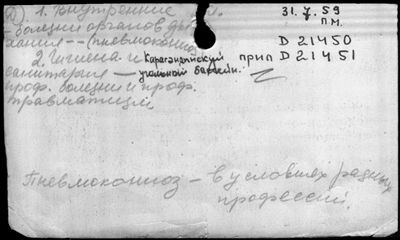 Д). 1. Внутренние
31.7.59
п.м.
- болезни органов ды-
хания -- (пневмокониоз
D 21450
2. Гигиена и Карагандинский прип D 21451
санитария — угольной бассейн.
проф. болезни и проф.
травматизм
Пневмокониоз - в условиях разных
профессий.